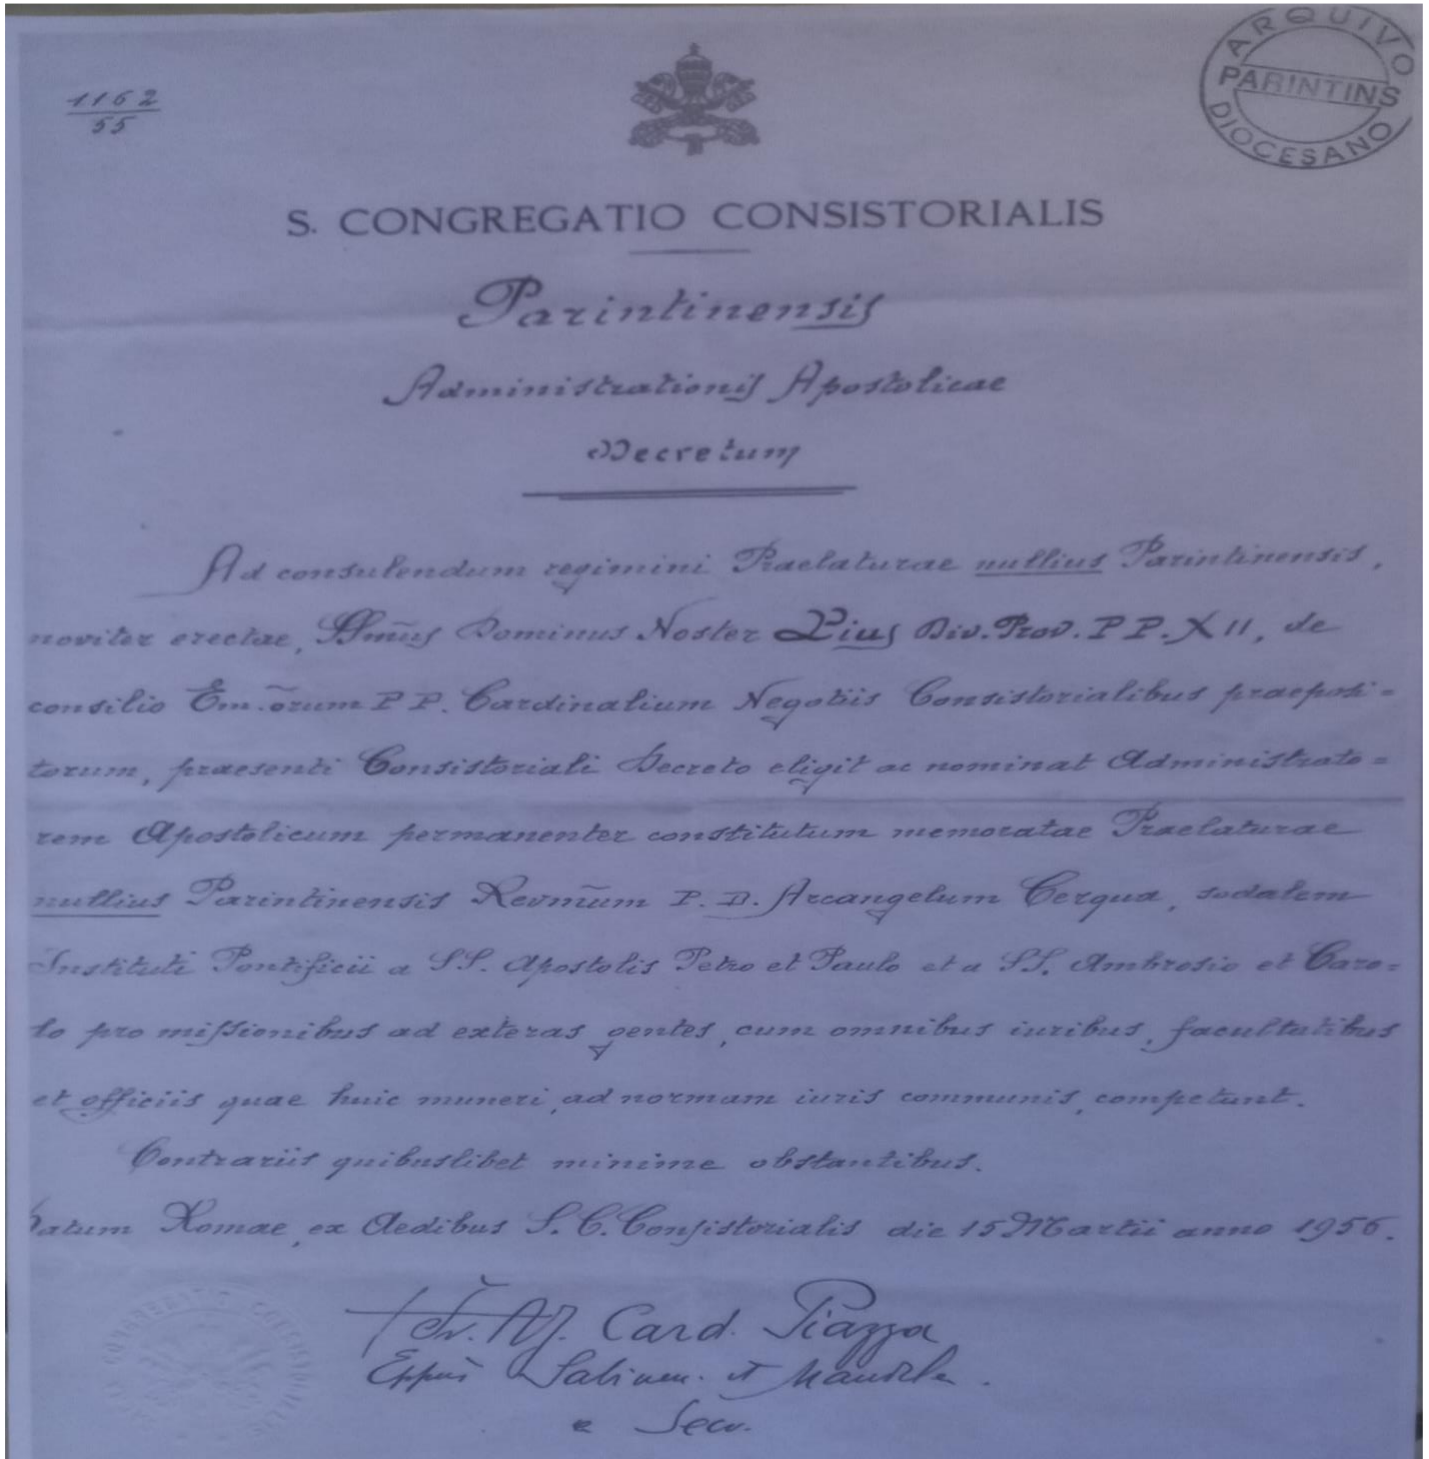 1162
55
ARQUIVO
PARINTINS
DIOCESANO
S. CONGREGATIO CONSISTORIALIS
Parintinensis
Administrationis Apostolicae
Decretum
Ad consulendum regimini Praelaturae nullius Parintinensis,
noviter erectae, SSmus Dominus Noster Pius Div. Prov. P P. XII, de
consilio Em.orum P P. Cardinalium Negotiis Consistorialibus praeposi=
torum, praesenti Consistoriali Decreto eligit ac nominat Administrato=
rem Apostolicum permanenter constitutum memoratae Praelaturae
nullius Parintinensis Revmum P. D. Arcangelum Cerqua, sodalem
Instituti Pontificii a SS. Apostolis Petro et Paulo et a SS. Ambrosio et Caro=
lo pro missionibus ad exteras gentes, cum omnibus iuribus, facultatibus
et officiis quae huic muneri, ad normam iuris communis, competunt.
Contrariis quibuslibet minime obstantibus.
Datum Romae, ex Aedibus S. C. Consistorialis die 15 Martii anno 1956.
+ Fr. A. J. Card. Piazza
Eppus Sabinen. et Mandela.
a Secr.